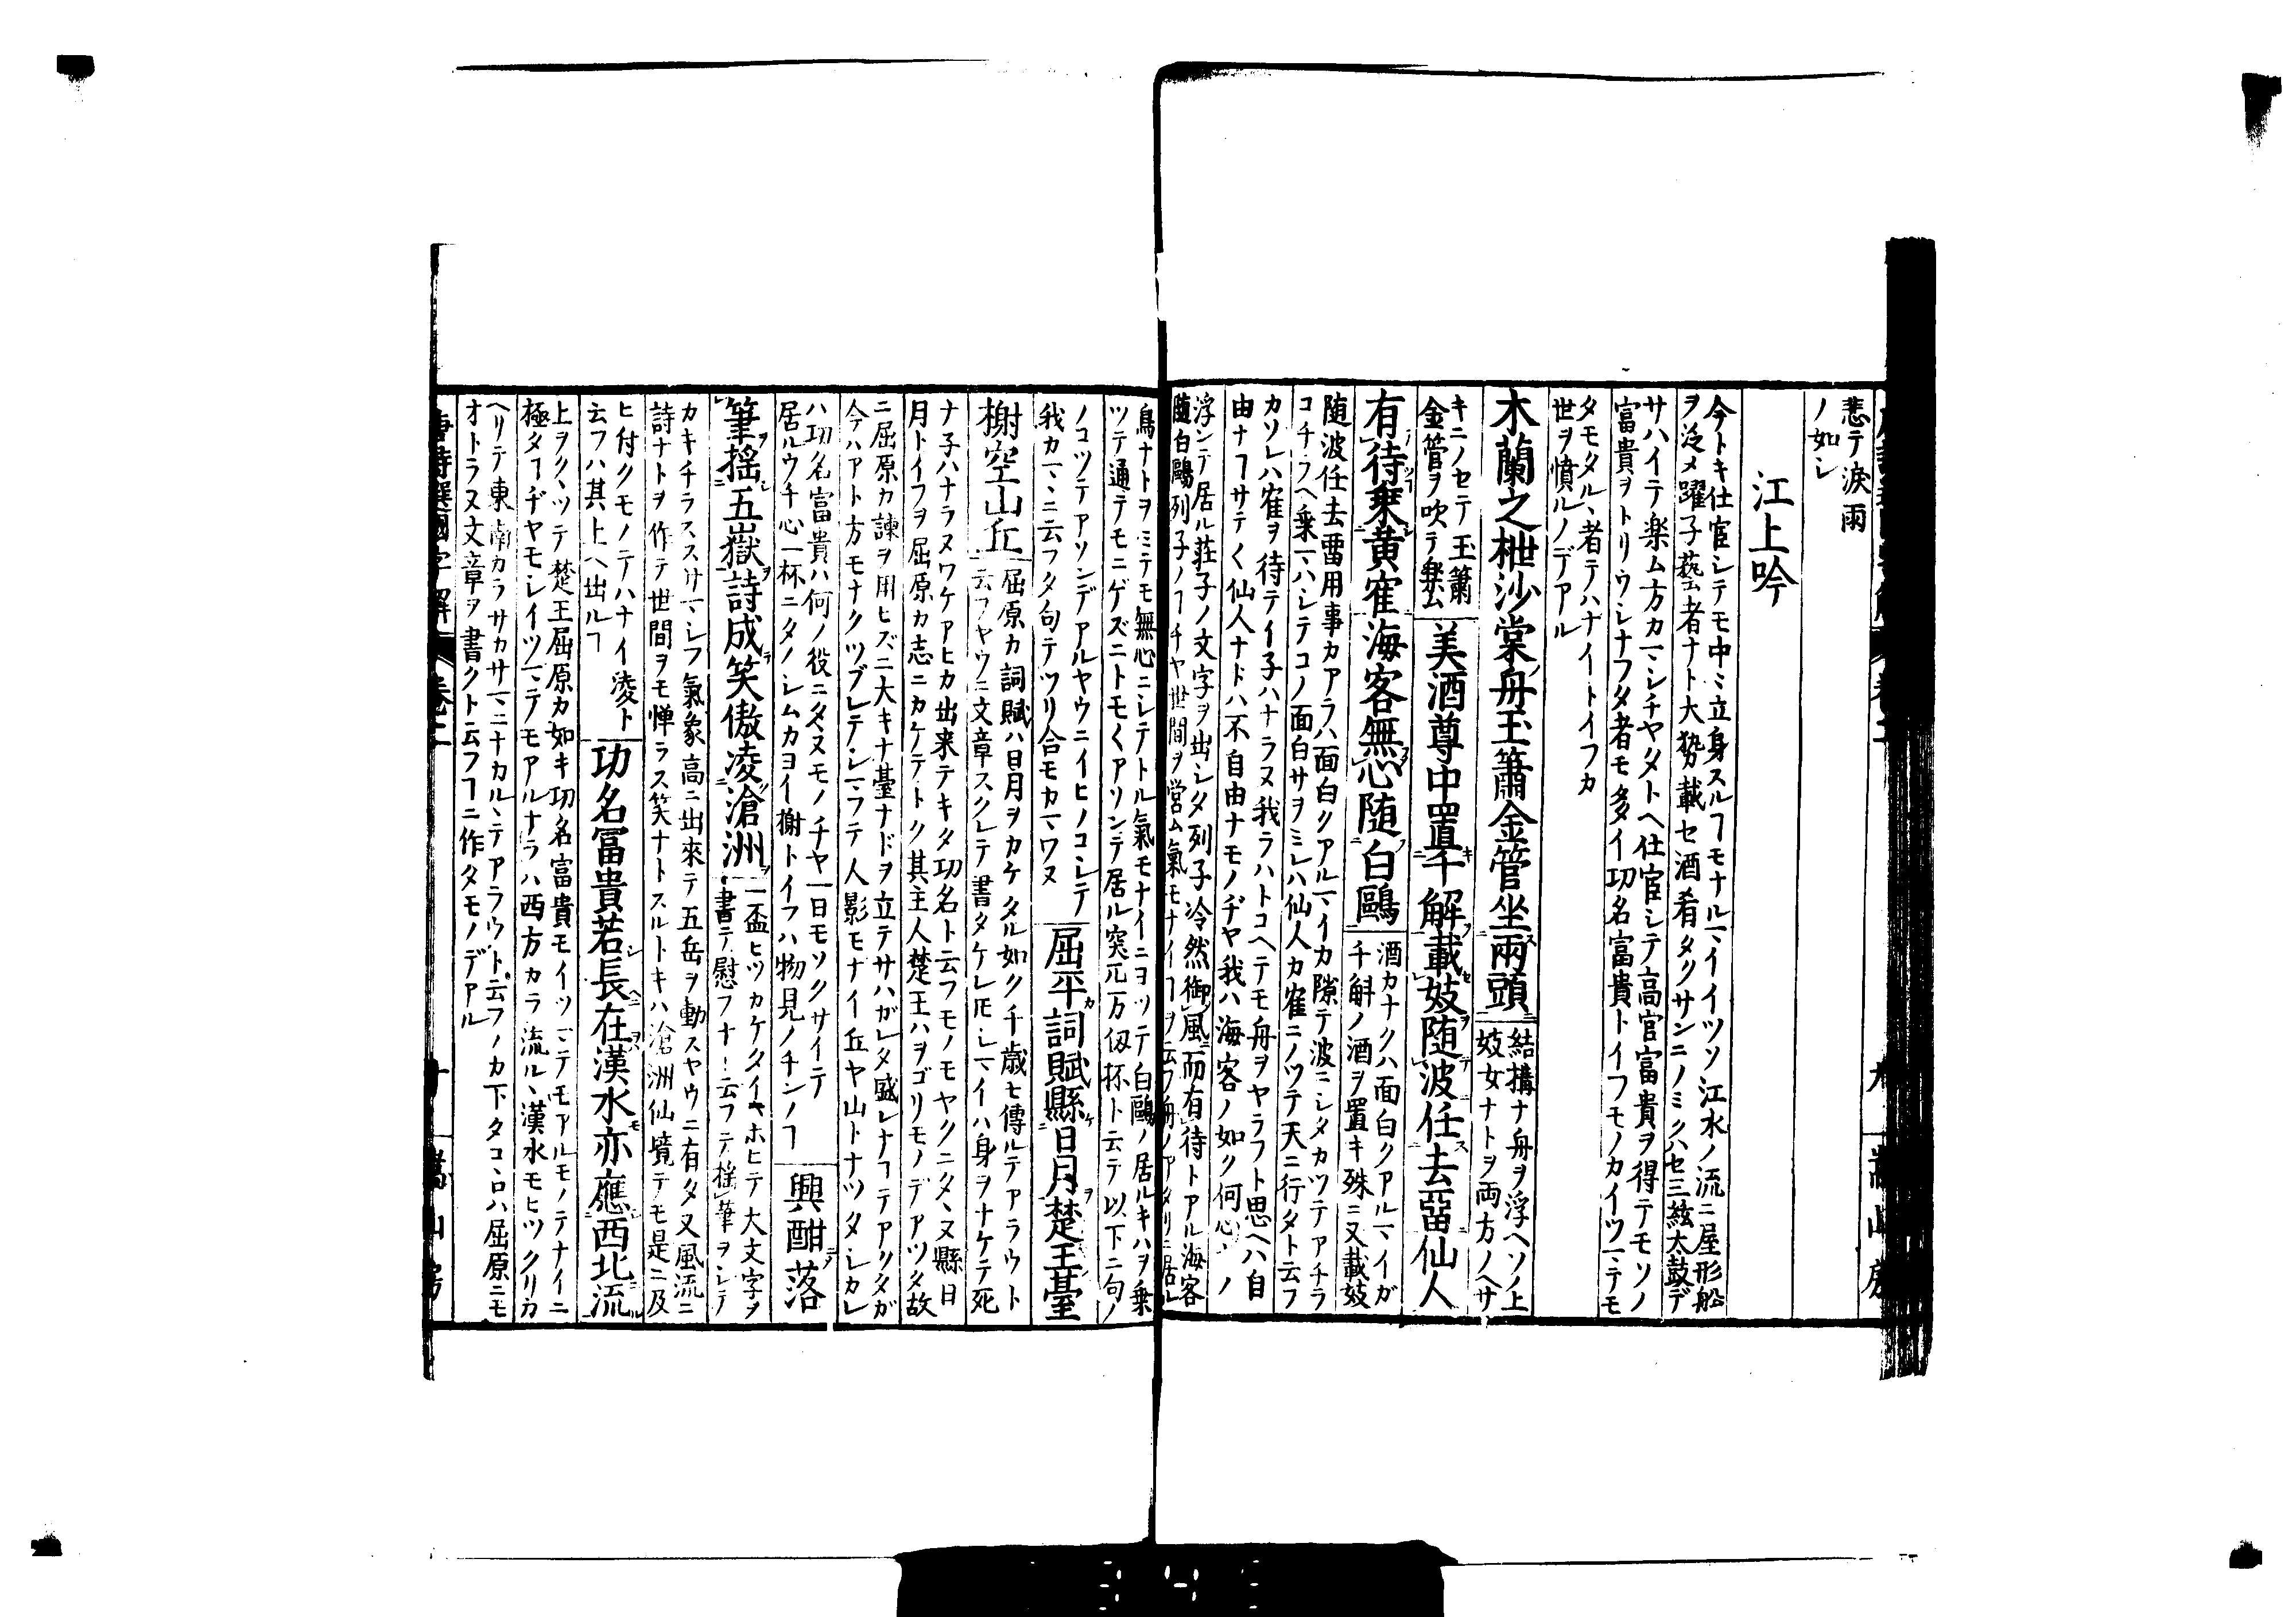 悲テ淚雨
ノ如シ
江上吟
今トキ仕宦シテモ中〻立身スルヿモナルマイイツソ江水ノ流ニ屋形船
ヲ泛メ躍子藝者ナト大勢載セ酒肴タクサンニノミクハセ三絃太鼓デ
サハイテ楽ム方カマシチヤタトヘ仕宦シテ高官富貴ヲ得テモソノ
富貴ヲトリウシナフタ者モ多イ功名富貴トイフモノカイツマテモ
タモタルヽ者テハナイトイフカ
世ヲ憤ルノデアル
木蘭之枻沙棠舟玉簫金管坐兩頭
結搆ナ舟ヲ浮ヘソノ上
妓女ナトヲ両方ノヘサ
キニノセテ玉簫
金管ヲ吹テ樂ム
美酒尊中置千斛載妓随波任去留仙人
有待乗黄寉海客無心随白鷗
酒カナクハ面白クアルマイガ
千斛ノ酒ヲ置キ殊ニ又載妓
随波任去留用事カアラハ面白クアルマイカ隙テ波ニシタカツテアチラ
コチラヘ乗マハシテコノ面白サヲミレハ仙人カ寉ニノツテ天ニ行タト云フ
カソレハ寉ヲ待テイ子ハナラヌ我ラハトコヘテモ舟ヲヤラフト思ヘハ自
由ナヿサテ〱仙人ナドハ不自由ナモノヂヤ我ハ海客ノ如ク何心ノ
浮ンテ居ル荘子ノ文字ヲ出シタ列子冷然御風而有待トアル海客
随白鷗列子ノヿチヤ世間ヲ営ム氣モナイヿヲ云フ舟ノアタリニ居ル
鳥ナトヲミテモ無心ニシテトル氣モナイニヨツテ白鷗ノ居ルキハヲ乗
ツテ通テモニゲズニトモ〱アソンデ居ル突兀万仭抔ト云テ以下ニ句ノ
ノコツテアソンデアルヤウニイヒノコシテ
我カマヽニ云フタ句テツリ合モカマワヌ
屈平詞賦縣日月楚王臺
榭空山丘
屈原カ詞賦ハ日月ヲカケタル如ク千歳モ傳ルテアラウト
云フヤウニ文章スクレテ書タケレ𪜈シマイハ身ヲナケテ死
ナ子ハナラヌワケアヒカ出来テキタ功名ト云フモノモヤクニタヽヌ縣日
月トイフヲ屈原カ志ニカケテトク其主人楚王ハヲゴリモノデアツタ故
ニ屈原カ諫ヲ用ヒズニ大キナ臺ナドヲ立テサハガレタ盛レナヿテアツタガ
今ハアト方モナクツブレテシマフテ人影モナイ丘ヤ山トナツタシカレ
ハ功名富貴ハ何ノ役ニタヽヌモノチヤ一日モソクサイテ
居ルウチ心一杯ニタノシムカヨイ榭トイフハ物見ノチンノヿ
興酣落
筆揺五嶽詩成笑傲凌滄洲
一盃ヒツカケタイキホヒテ大文字ヲ
書テ慰フナト云フテ揺筆ヲシテ
カキチラススサマシフ氣象高ニ出來テ五岳ヲ動スヤウニ有タ又風流ニ
詩ナトヲ作テ世間ヲモ憚ラス笑ナトスルトキハ滄洲仙境テモ是ニ及
ヒ付クモノテハナイ凌ト
云フハ其上ヘ出ルヿ
功名冨貴若長在漢水亦應西北流
上ヲクヽツテ楚王屈原カ如キ功名富貴モイツマテモアルモノテナイニ
極タヿヂヤモシイツマテモアルナラハ西方カラ流ルヽ漢水モヒツクリカ
ヘリテ東南カラサカサマニナカルヽテアラウト云フノカ下タコヽロハ屈原ニモ
オトラヌ文章ヲ書クト云フヿニ作タモノデアル
唐詩選國字解 卷二 十 嵩山房